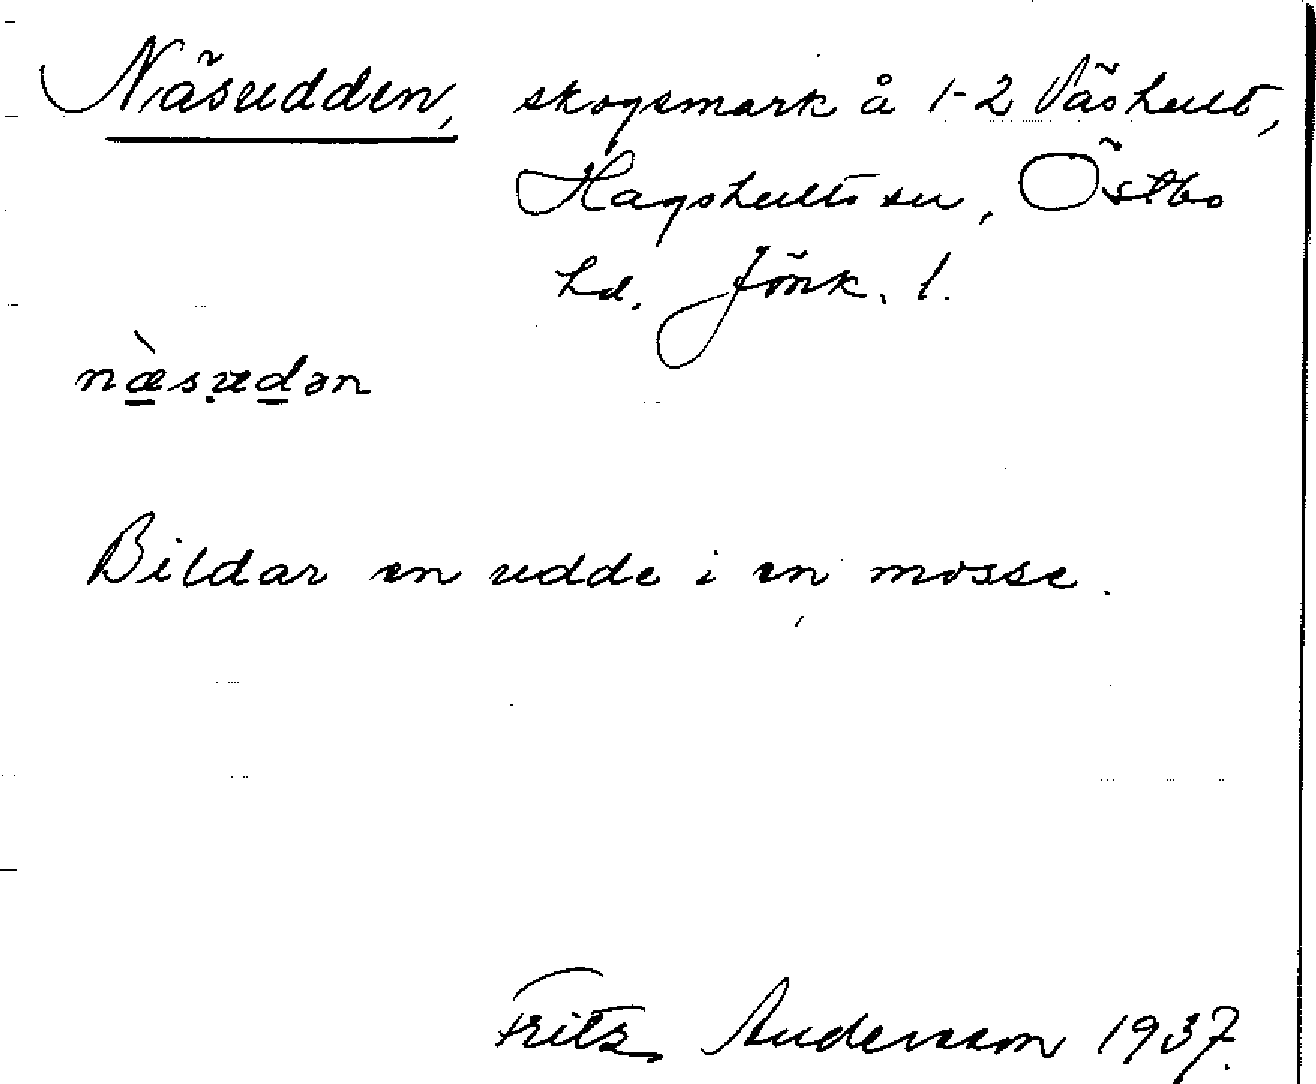 Näsudden, skogsmark å 1-2 Våshult,
Hagshults sn, Östbo
hd. Jönk. l.
næ̀sudən
Bildar en udde i en mosse.
Fritz Andersson 1937.